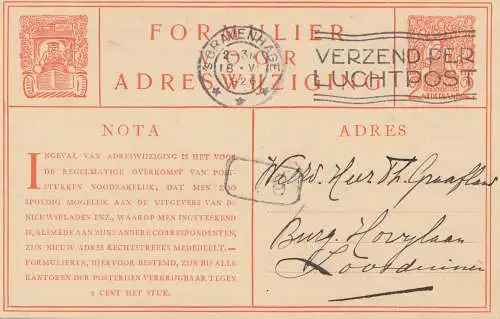 FORMULIER
VOOR
ADRESWIJZIGING
'S-GRAVENHAGE
VERZEND PER
LUCHTPOST
NEDERLAND
NOTA
INGEVAL VAN ADRESWIJZIGING IS HET VOOR
DE REGELMATIGE OVERKOMST VAN POST-
STUKKEN NOODZAKELIJK, DAT MEN ZOO
SPOEDIG MOGELIJK AAN DE UITGEVERS VAN DE
NIEUWSBLADEN ENZ., WAAROP MEN INGETEEKEND
IS, ALMEDE AAN ZIJNE ANDERE CORRESPONDENTEN,
ZIJN NIEUW ADRES RECHTSTREEKS MEDEDEELT.—
FORMULIEREN, HIERVOOR BESTEMD, ZIJN BIJ ALLE
KANTOREN DER POSTERIJEN VERKRIJGBAAR TEGEN
1 CENT HET STUK.
ADRES
Heer Th. Graafland
Burg. Hovylaan
Loosduinen